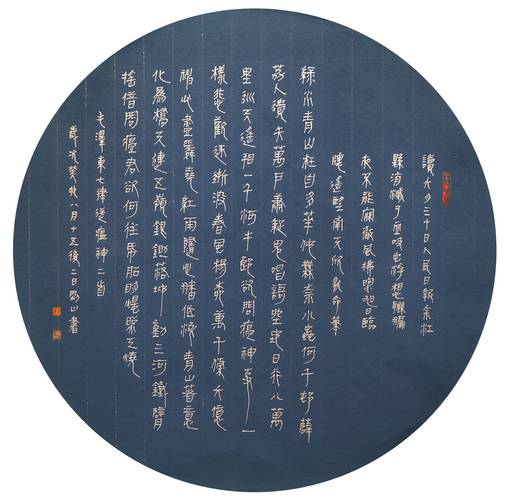 讀六月三十日人民日報余江
縣消滅了血吸虫浮想聯翩
夜不能寐微風拂煦旭日臨
窗遙望南天欣然命筆
綠水青山枉自多華佗無奈小蟲何千村薜
荔人遺矢萬戶蕭疏鬼唱歌坐地日行八萬
里巡天遙看一千河牛郎欲問瘟神事一
樣悲歡逐逝波春風楊柳萬千條六億
神州盡舜堯紅雨隨心翻作浪青山著意
化為橋天連五嶺銀鋤落地動三河鐵臂
搖借問瘟君欲何往紙船明燭照天燒
毛澤東七律送瘟神二首
歲次癸卯八月十五後二日山書